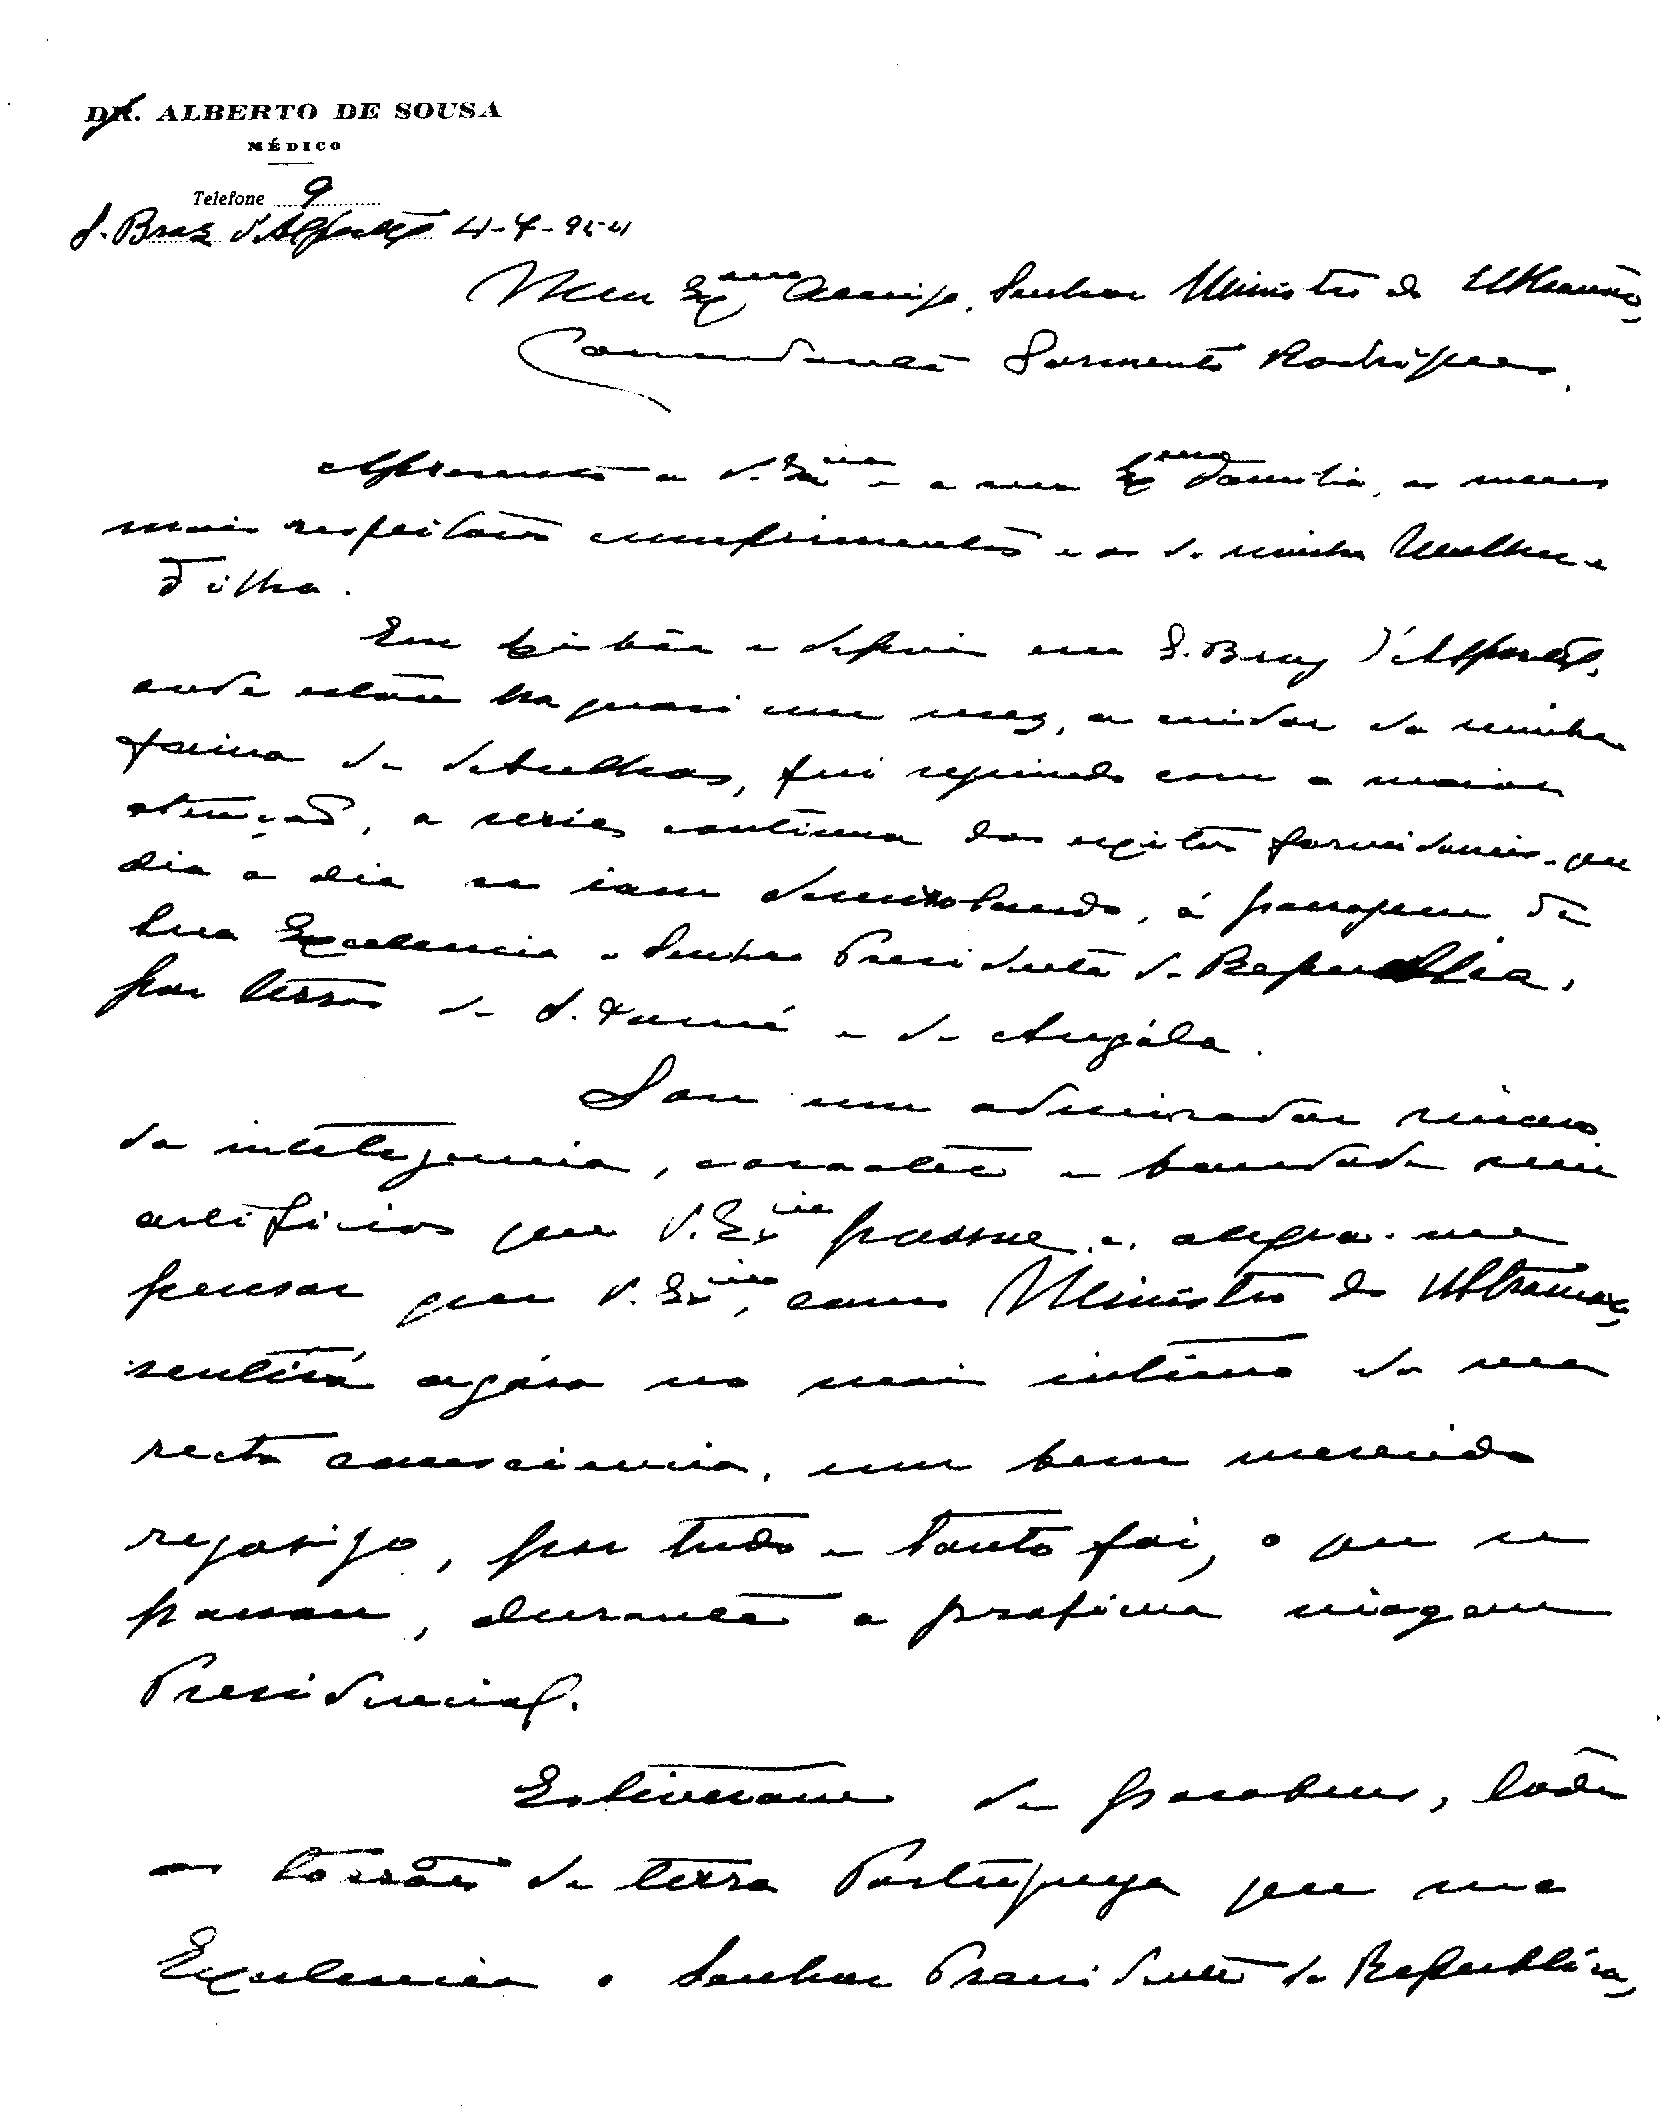 DR. ALBERTO DE SOUSA
MÉDICO
Telefone 9
S. Braz d'Alportel 4-7-954
Meu Exmo Amigo, Senhor Ministro do Ultramar,
Comandante Sarmento Rodrigues,
Apresento a V. Excia e a sua Exma Familia, os meus
mais respeitosos cumprimentos e os de minha Mulher e
Filha.
Em Lisbôa e depois em S. Braz d'Alportel,
onde estou ha quasi um mez, a cuidar da minha
faina de debulhas, fui seguindo com a maior
atenção, a serie continua dos exitos formidaveis, que
dia a dia se iam desenrolando, á passagem de
Sua Excelencia o Senhor Presidente da Republica,
por terras de S. Tomé e de Angóla.
Sou um admirador sincero
da inteligencia, caracter e bondade sem
artificios que V. Excia possue e alegra-me
pensar que V. Excia, como Ministro do Ultramar,
sentirá agóra no mais intimo da sua
recta consciencia, um bem merecido
regosijo, por tudo e tanto foi, o que se
passou, durante a proficua viagem
Presidencial.
Estiveram de parabens, todos
os torrões de terra Portugueza que sua
Excelencia o Senhor Presidente da Republica,